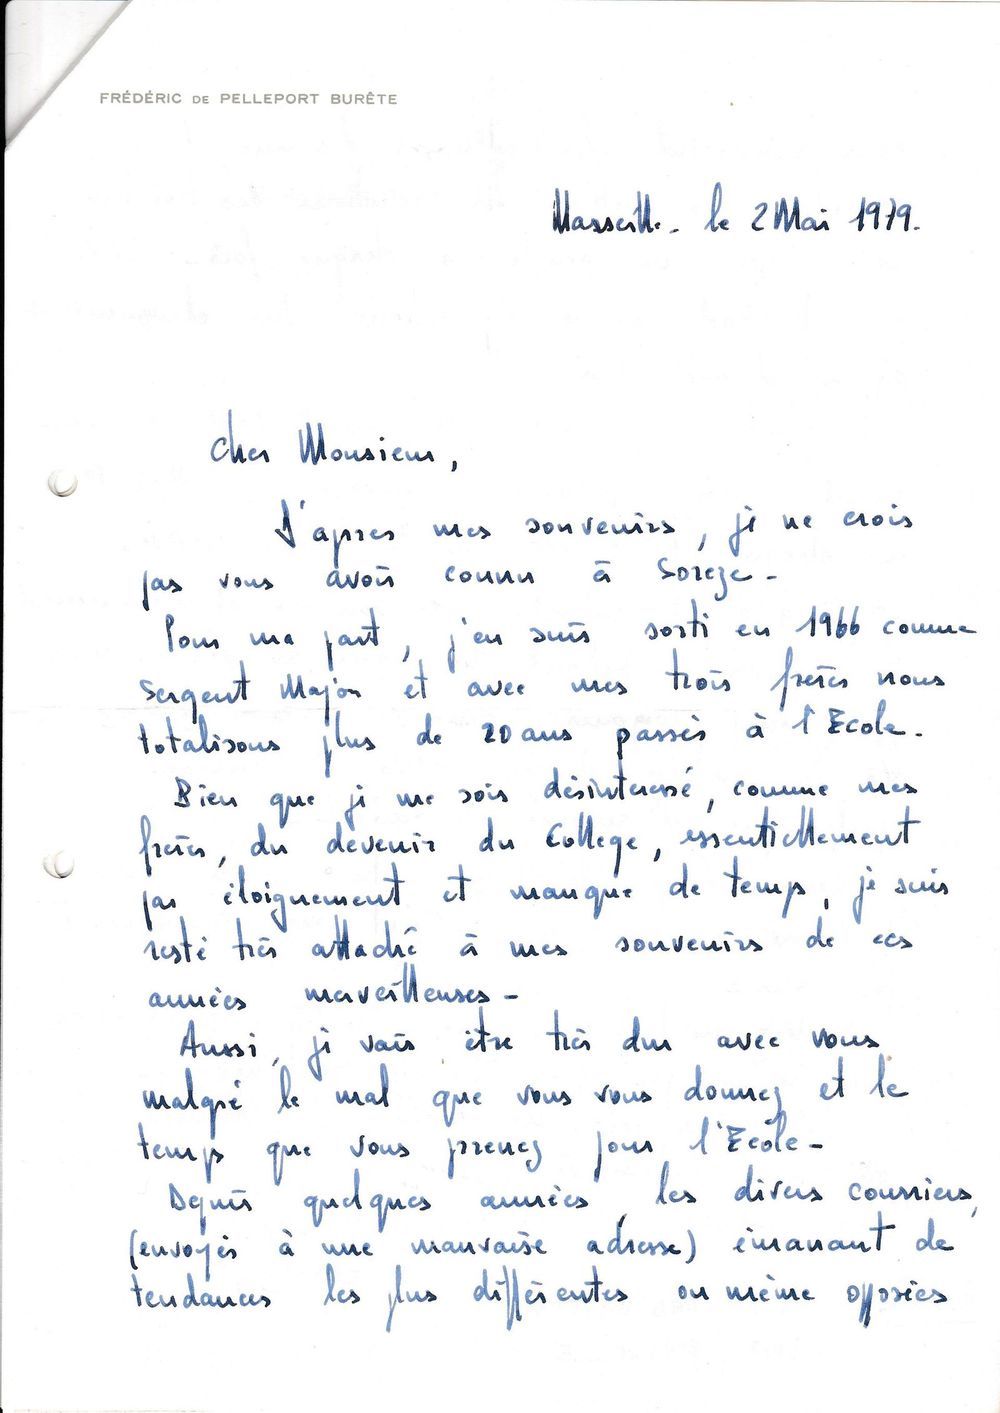 FRÉDÉRIC DE PELLEPORT BURÊTE
Marseille. le 2 Mai 1979.
Cher Monsieur,
D'après mes souvenirs, je ne crois
pas vous avoir connu à Soreze -
Pour ma part, j'en suis sorti en 1966 comme
Sergent Major et avec mes trois frères nous
totalisons plus de 20 ans passés à l'Ecole.
Bien que je me sois désinteressé, comme mes
frères, du devenir du College, essentiellement
par éloignement et manque de temps, je suis
resté très attaché à mes souvenirs de ces
années merveilleuses -
Aussi, je vais être très dur avec vous
malgré le mal que vous vous donnez et le
temps que vous prenez pour l'Ecole -
Depuis quelques années, les divers courriers,
(envoyés à une mauvaise adresse) émanant de
tendances les plus différentes ou même opposées